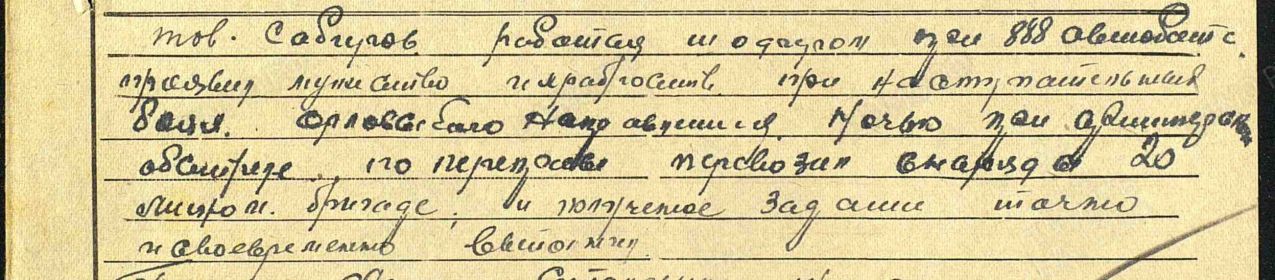 тов. Сабгуров работая шофером при 888 автобат с.
проявил мужество и храбрость при наступательных
боях. Орловского направления. Ночью при артилер
обстреле, по переправе перевозил снаряда 20
бригаде, и получемое задание точно
и своевременно выполнил